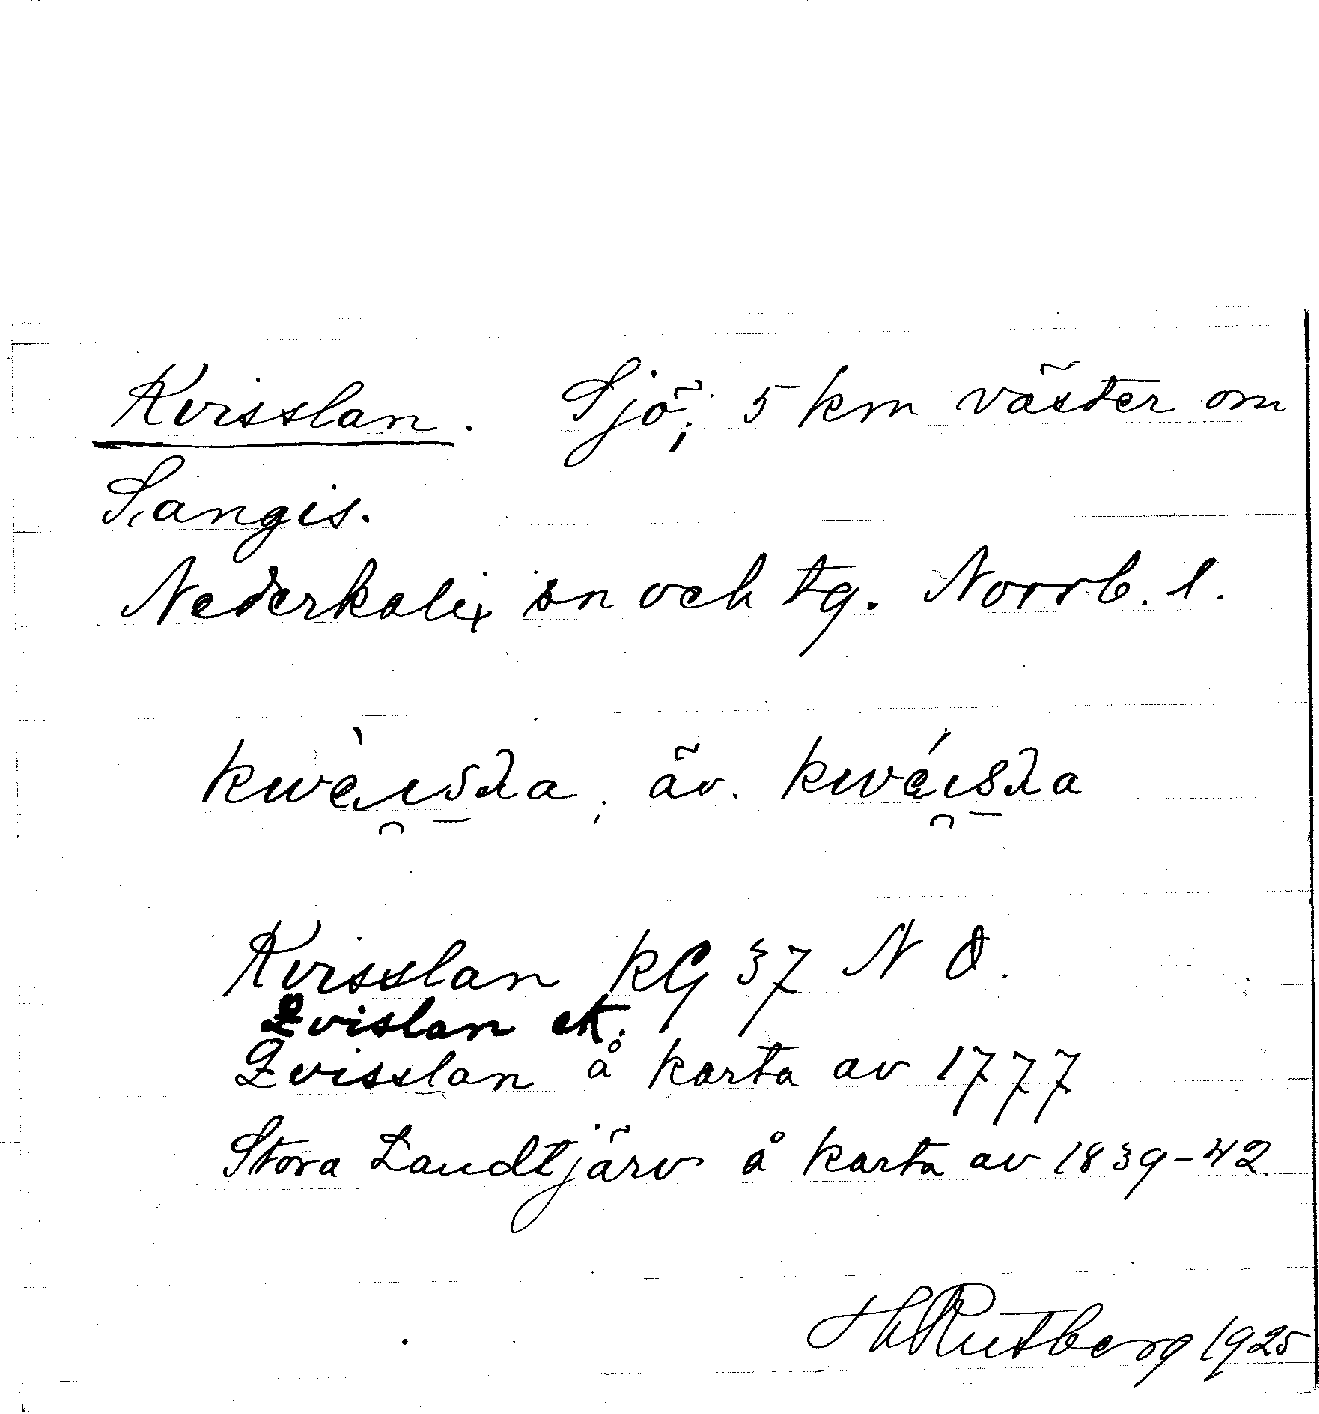 Kvisslan. Sjö, 5 km väster om
Sangis.
Nederkalix sn och tg. Norrb. l.
kwèısλa, äv. kwéısλa
Kvisslan KG 37 N Ö.
Qvislan ek.
Qvisslan å karta av 1777
Stora Landtjärv å karta av 1839-42
H Rutberg 1925